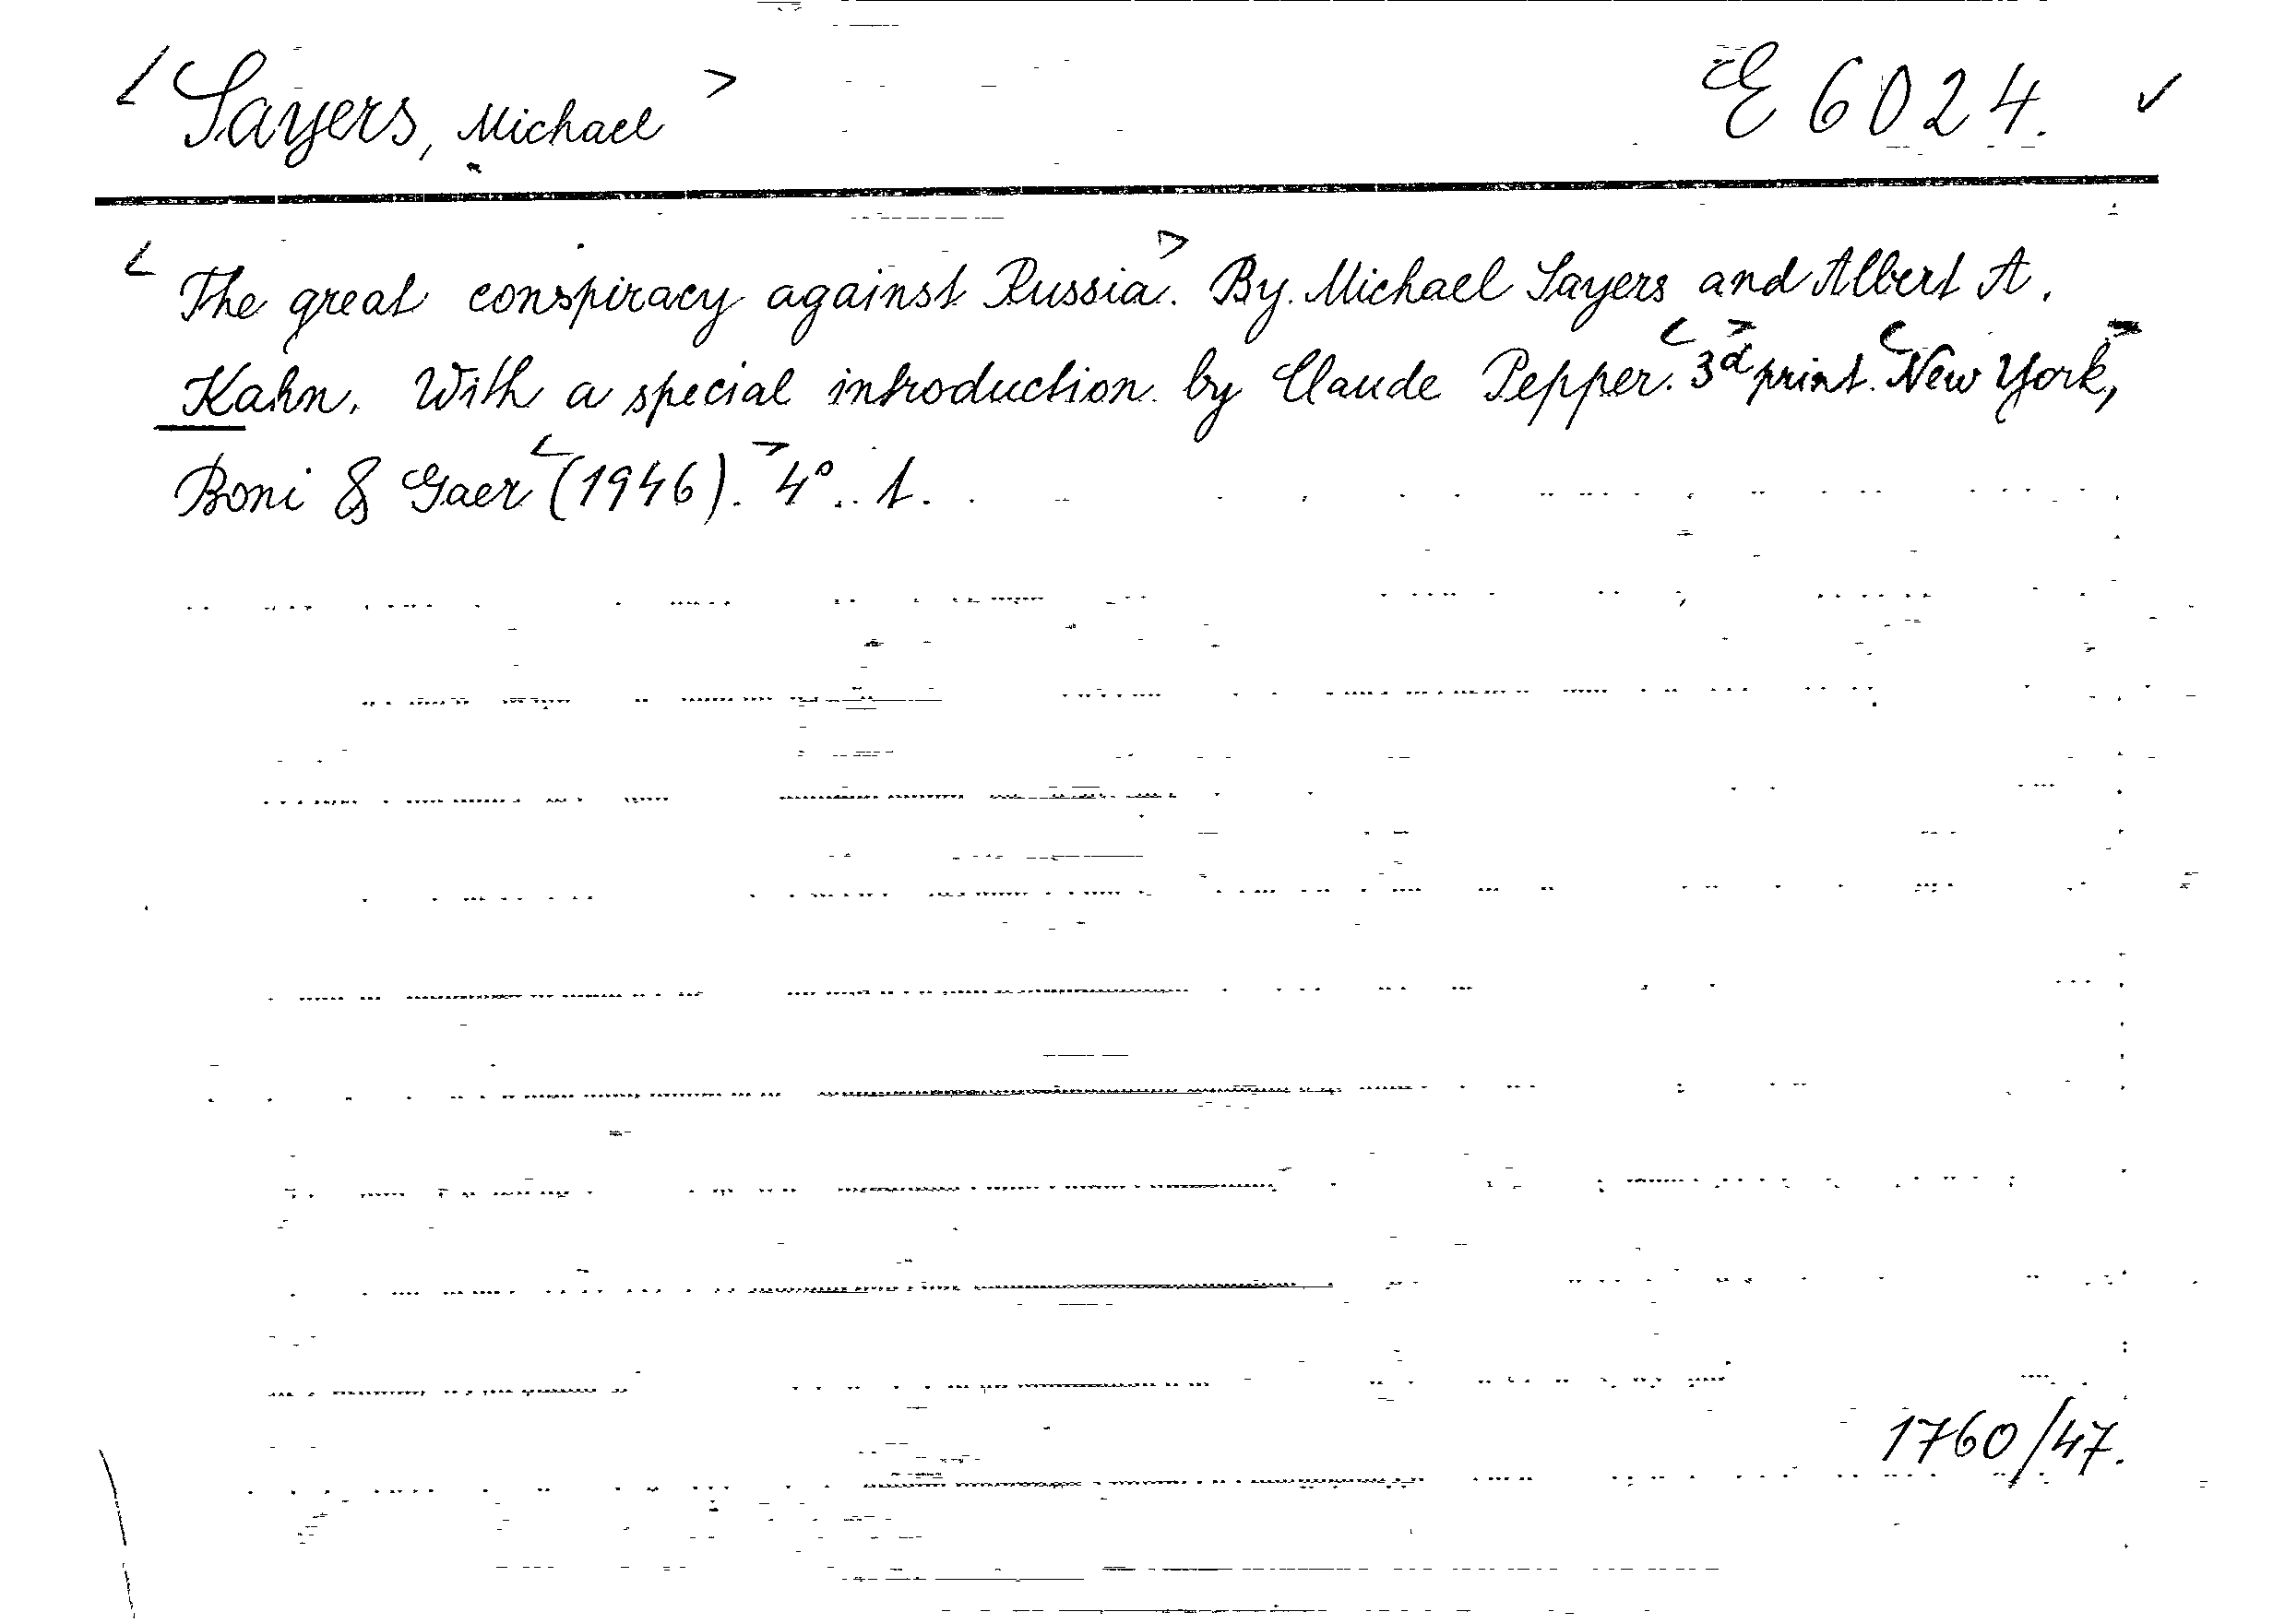 < Sayers, Michael > E 6024. ✓
< The great conspiracy against Russia >. By Michael Sayers and Albert A.
Kahn. With a special introduction by Claude Pepper. < 3d > print. < New York, >
Boni & Gaer < (1946). > 4°. 1.
1760/47.